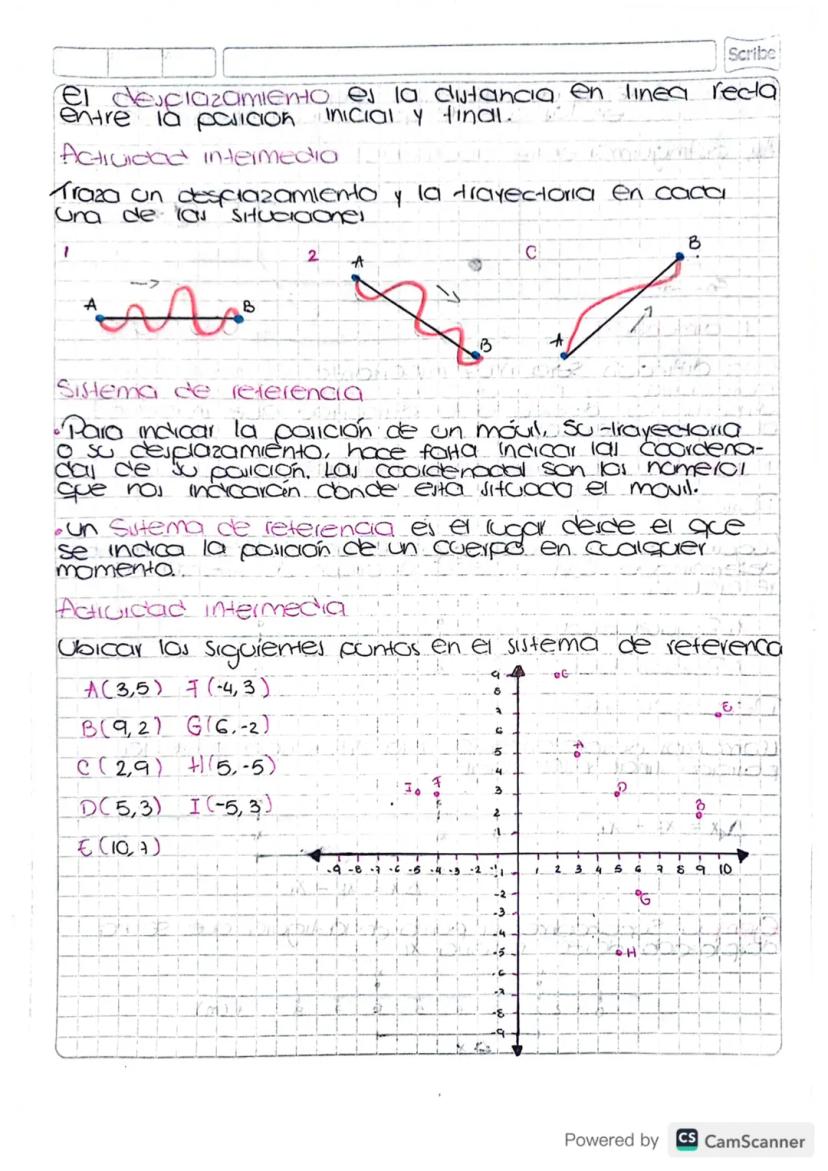 Scribe
El desplazamiento es la distancia en linea recta
entre la posicion inicial y final.
Actividad intermedia
Traza un desplazamiento y la trayectoria en cada
una de las situaciones
1 2 C
A B
A B
A B
Sistema de referencia
•Para indicar la posición de un móvil, su trayectoria
o su desplazamiento, hace falta indicar las coordena-
das de su posición. Las coordenadas son los números
que nos indicarán donde esta situado el movil.
•un Sistema de referencia es el lugar desde el que
se indica la posición de un cuerpo en cualquier
momento.
Actividad intermedia
Ubicar los siguientes puntos en el sistema de referenca
A(3,5) F(-4,3)
B(9,2) G(6,-2)
C(2,9) H(5,-5)
D(5,3) I(-5,3)
E(10,7)
9 C
8
7 E
6
5 A
4
3 I F D
2 B
1
-9 -8 -7 -6 -5 -4 -3 -2 -1 1 2 3 4 5 6 7 8 9 10
-2 G
-3
-4
-5 H
-6
-7
-8
-9
Powered by CS CamScanner